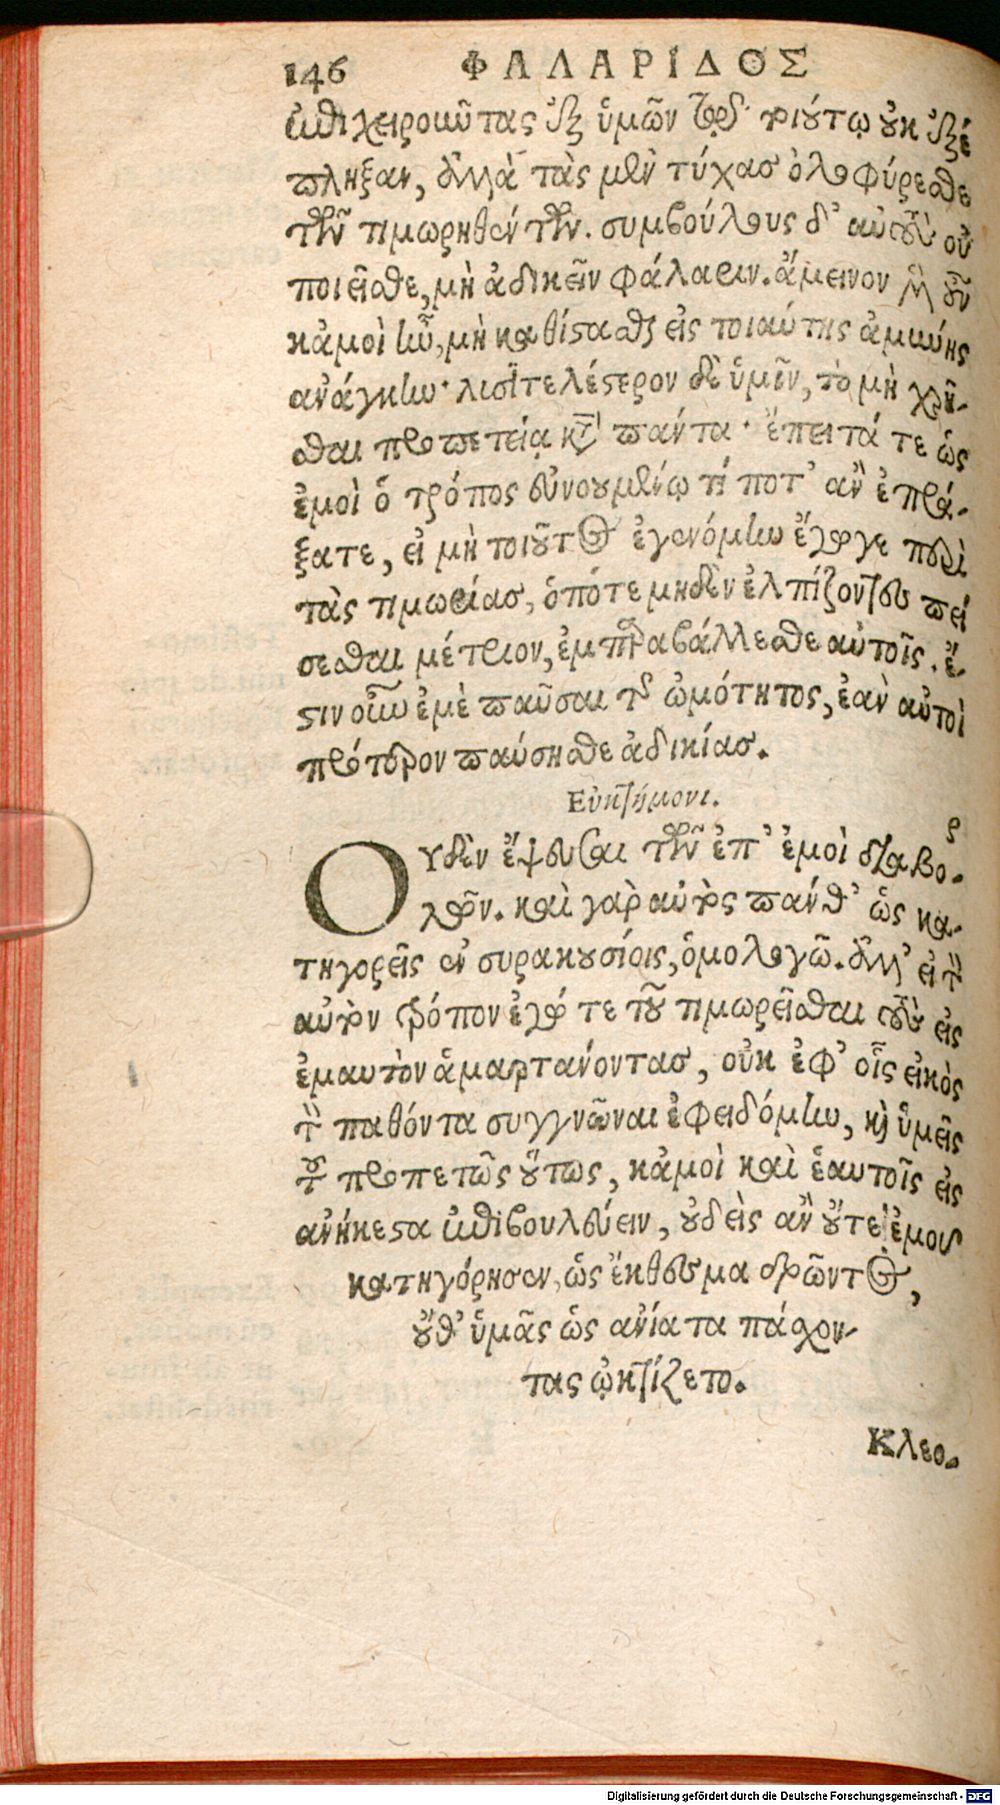 146 ΦΑΛΑΡΙΔΟΣ
ἐπιχειροῦντας ἐξ ὑμῶν τούτῳ οὐκ ἐξέ
πληξαν, ἀλλὰ τὰς μὲν τύχας ὀλοφύρεσθε
τῶν τιμωρηθέντων. συμβούλους δ' αὐτοὺς οὐ
ποιεῖσθε, μὴ ἀδικεῖν Φάλαριν. ἄμεινον μὲν οὖν
κἀμοὶ ἦν, μὴ καθίστασθαι εἰς τοιαύτης ἀμύνης
ἀνάγκην· λυσιτελέστερον δὲ ὑμῖν, τὸ μὴ χρῆ-
σθαι προπετείᾳ κατὰ πάντα· ἔπειτά τε ὡς
ἐμοὶ ὁ τρόπος εὐνουμένῳ τί ποτ' ἂν ἐπρά-
ξατε, εἰ μὴ τοιοῦτος ἐγενόμην ἔγωγε περὶ
τὰς τιμωρίας, ὁπότε μηδὲν ἐλπίζοντες πεί
σεσθαι μέτριον, ἐμπαραβάλλεσθε αὐτοῖς. ἔ-
στιν οὖν ἐμὲ παῦσαι τῆς ὠμότητος, ἐὰν αὐτοὶ
πρότερον παύσησθε ἀδικίας.
Εὐκτήμονι.
ΟΥδὲν ἔψευσαι τῶν ἐπ' ἐμοὶ διαβο-
λῶν. καὶ γὰρ αὐτὸς πάνθ' ὡς κα-
τηγορεῖς ἐν συρακουσίοις, ὁμολογῶ. ἀλλ' εἰ τὸν
αὐτὸν τρόπον ἐγώ τε τοῦ τιμωρεῖσθαι τοὺς εἰς
ἐμαυτὸν ἁμαρτάνοντας, οὐκ ἐφ' οἷς εἰκὸς
τὸν παθόντα συγγνῶναι ἐφειδόμην, καὶ ὑμεῖς
τοῦ προπετῶς οὕτως, κἀμοὶ καὶ ἑαυτοῖς εἰς
ἀνήκεστα ἐπιβουλεύειν, οὐδεὶς ἂν οὔτε ἐμοῦ
κατηγόρησεν, ὡς ἔκθεσμα δρῶντος,
οὔθ' ὑμᾶς ὡς ἀνίατα πάσχον-
τας ᾠκτίζετο.
Κλεο-
Digitalisierung gefördert durch die Deutsche Forschungsgemeinschaft - DFG